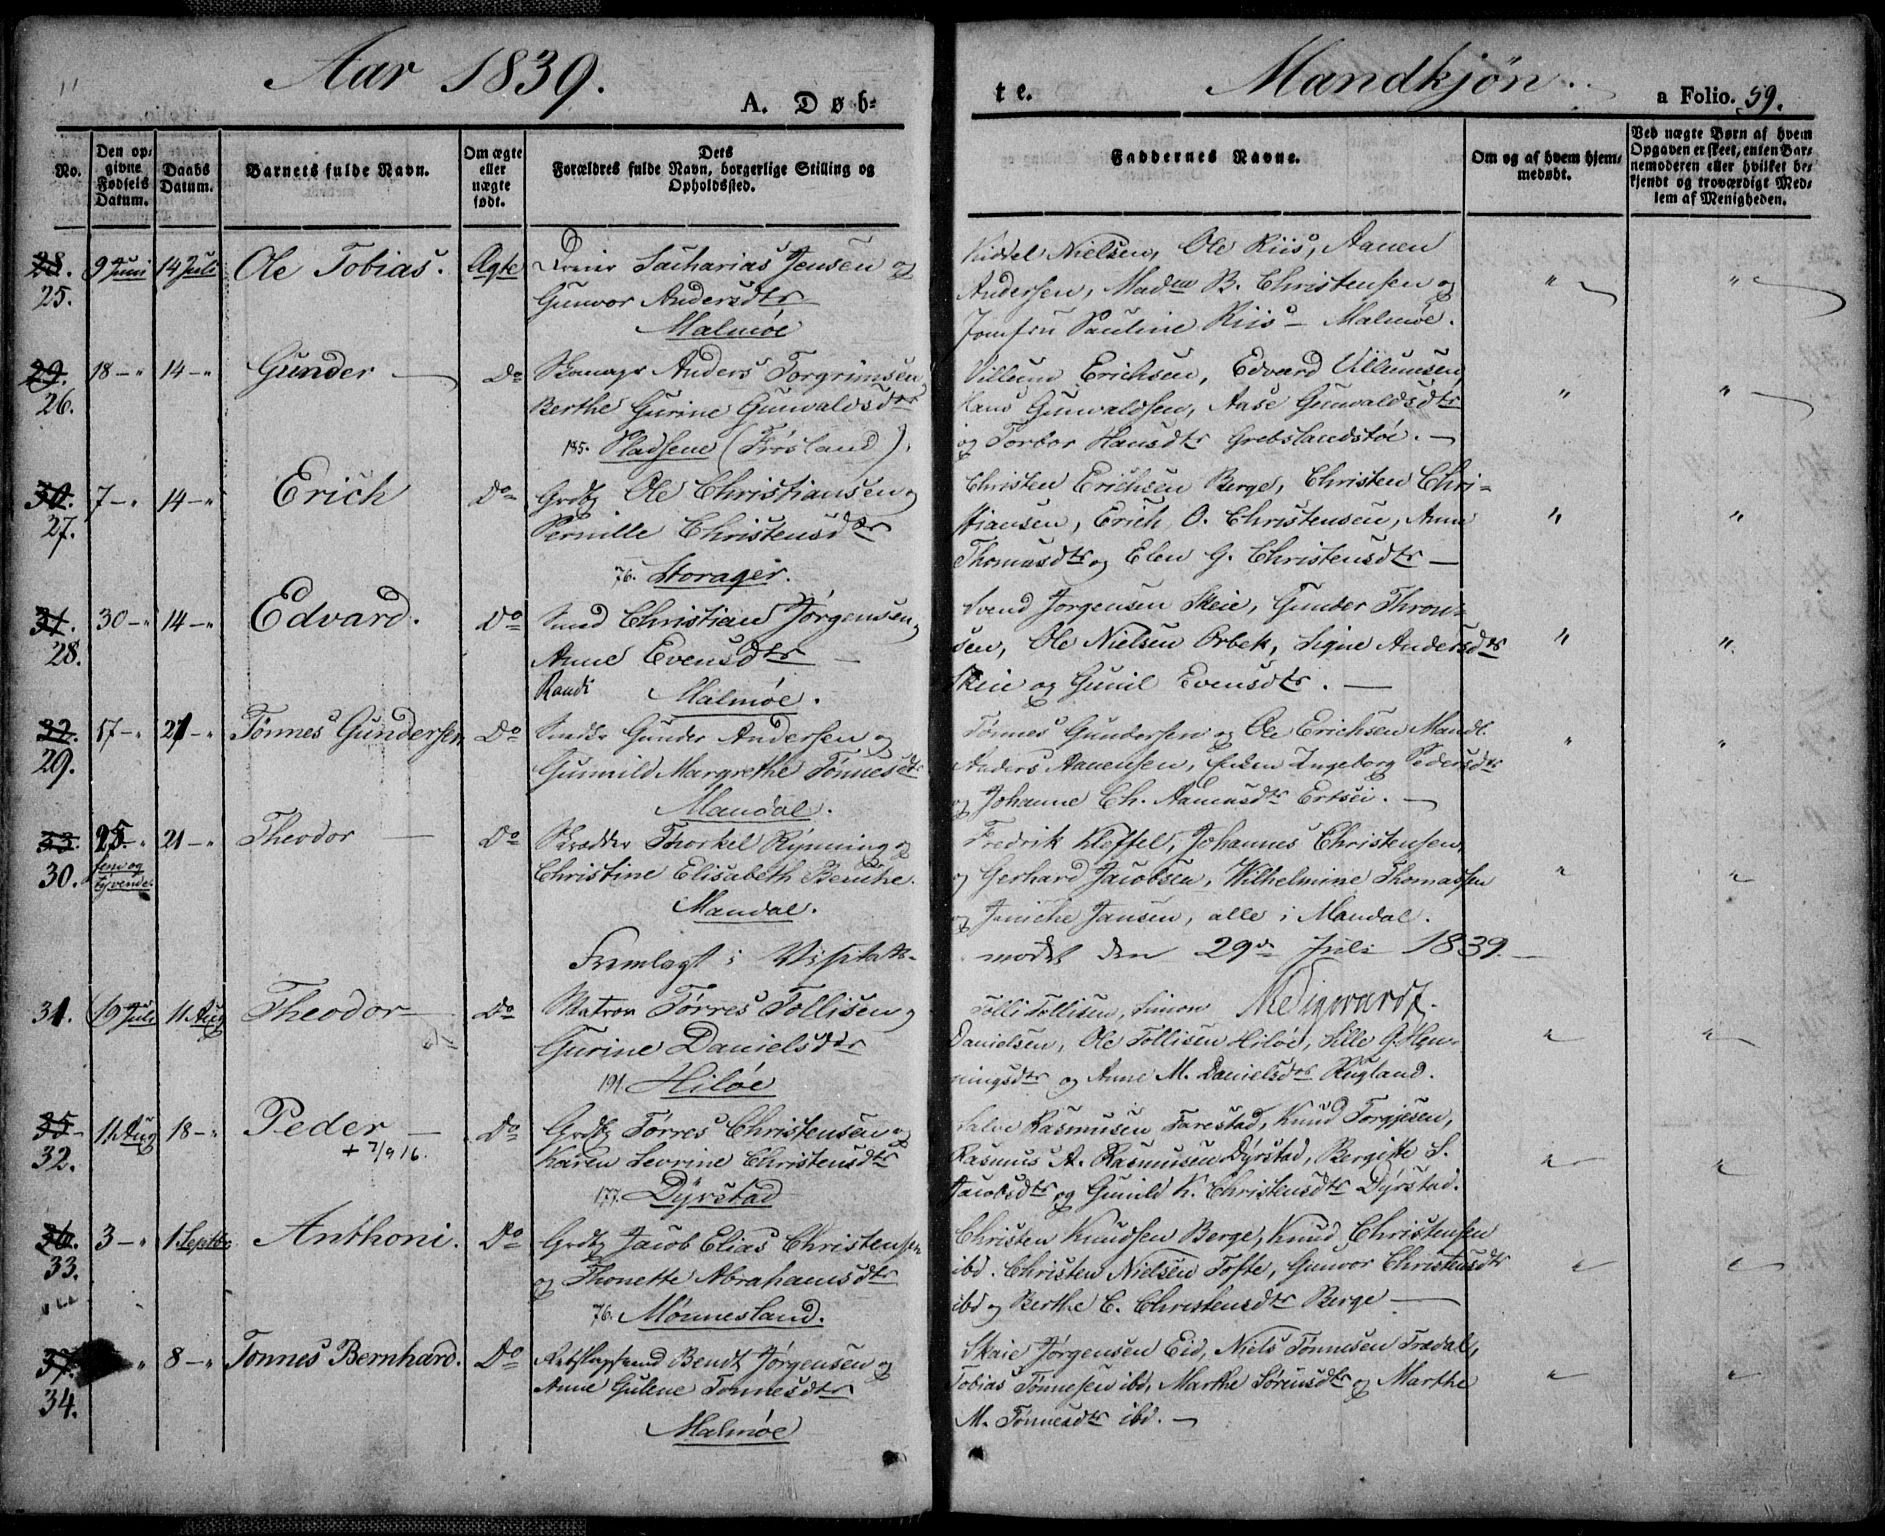 Aar 1839.
A. Døb-
No.
Den op-
givne
Fødsels
Datum.
Daabs
Datum.
Barnets fulde Navn.
Om ægte
eller
uægte
født.
Dets
Forældres fulde Navn, borgerlige Stilling og
Opholdssted.
28.
25.
9 Juni
14 Juli
Ole Tobias.
Ægte
Zacharias Jensen og
Gunvor Andersdtr
Malmøe
29.
26.
18 - "
14 - "
Gunder
Do
Anders Torgrimsen
Berthe Gurine Gunvaldsdtr
185. Pladsene (Frøsland).
30.
27.
7 - "
14 - "
Erich
Do
Grdbg Ole Christiansen og
Pernille Christensdtr
76. Storager.
31.
28.
30 - "
14 - "
Edvard.
Do
Smed Christian Jørgensen
Anne Evensdtr
Randi Malmøe.
32.
29.
17 - "
21 - "
Tønnes Gundersen
Do
Gunder Andersen og
Gunnild Margrethe Tønnesdtr
Mandal.
33.
30.
25 - "
fem og
tyvende
21 - "
Theodor
Do
Skrædder Thorkel Rynning og
Christine Elisabeth
Mandal.
Fremlagt i Visitats-
31.
19 Juli
11 Aug
Theodor
Do
Matros Tørres Tollisen og
Gurine Danielsdtr
191. Hiløe
35
32.
11 Aug
18 - "
Peder
+ 7/9 16.
Do
Grdbg Tørres Christensen og
Karen Sevrine Christensdtr
177. Dyrstad
36.
33.
3 - "
1 Septbr
Anthoni.
Do
Grdbg Jacob Elias Christensen
og Thonette Abrahamsdtr
76. Mønnesland.
37.
34.
8 - "
Tønnes Bernhard.
Do
Bendt Jørgensen og
Anne Gulene Tønnesdtr
Malmøe
te.
Mandkjøn.
a Folio. 59.
Faddernes Navne.
Om og af hvem hjem-
medøbt.
Ved uægte Børn af hvem
Opgaven er skeet, enten Bar-
nemoderen eller hvilket be-
kjendt og troværdigt Med-
lem af Menigheden.
Kiddel Nielsen, Ole Riis, Aanen
Andersen, Madm B. Christensen og
Jomfru Pauline Riis - Malmøe.
Villum Erichsen, Edvard Villumsen,
Hans Gunvaldsen, Aase Gunvaldsdtr
og Torbor Hansdtr Grebslandstøe.
Christen Erichsen Berge, Christen Chri-
stiansen, Erich O. Christensen, Anne
Thomasdtr og Elen G. Christensdtr
Svend Jørgensen Skeie, Gunder Thron-
sen, Ole Nielsen Orbek, Signe Andersdtr
Skeie og Gunil Evensdtr.
Tønnes Gundersen og Ole Erichsen Mandl.
Anders Aanensen, Enken Ingeborg Pedersdtr
og Johanne Ch. Aamusdtr Ertsei.
Fredrik Kløftel, Johannes Christensen,
og Gerhard Jacobsen, Wilhelmine Thomassen
og Jeniche Jansen, alle i Mandal.
mødet den 29de Juli 1839.
Tolli Tollisen, Simon
Danielsen, Ole Tollisen Hiløe, Sille G. Hen-
ningsdtr og Anne M. Danielsdtr Rugland.
Salve Rasmusen Farestad, Knud Torgjesen,
Rasmus A. Rasmusen Dyrstad, Bergitte S.
Jacobsdtr og Gunild K. Christensdtr Dyrstad.
Christen Knudsen Berge, Knud Christensen
ibd. Christen Nielsen Tofte, Gunvor Christensdtr
ibd og Berthe C. Christensdtr Berge
Skaie Jørgensen Eid, Niels Tønnesen Fredal,
Tobias Tønnesen ibd, Marthe Sørensdtr og Marthe
M. Tønnesdtr ibd.